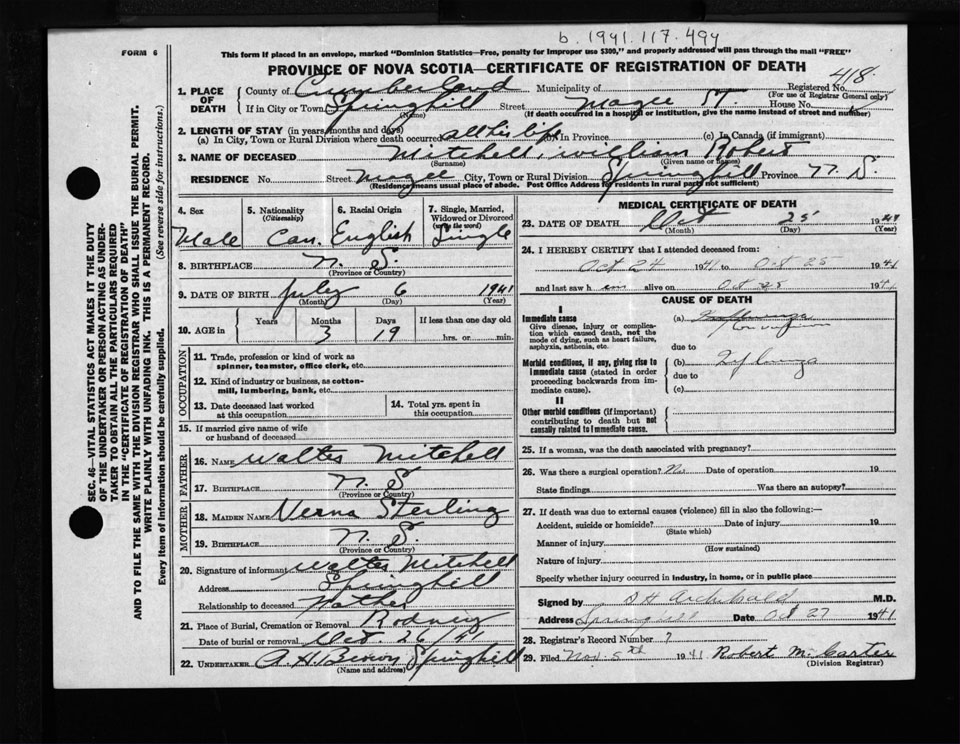 b. 1941.117.494
FORM 6
This form if placed in an envelope, marked "Dominion Statistics—Free, penalty for improper use $300," and properly addressed will pass through the mail "FREE"
PROVINCE OF NOVA SCOTIA—CERTIFICATE OF REGISTRATION OF DEATH
418
1. PLACE OF DEATH
County of Cumberland Municipality of Registered No.
(For use of Registrar General only)
If in City or Town Springhill Street Magee ST. House No.
(Name) (If death occurred in a hospital or institution, give the name instead of street and number)
2. LENGTH OF STAY (in years, months and days)
(a) In City, Town or Rural Division where death occurred all his life (b) In Province (c) In Canada (if immigrant)
3. NAME OF DECEASED Mitchell, William Robert
(Surname) (Given name or names)
RESIDENCE No. Street Magee City, Town or Rural Division Springhill Province N. S.
(Residence means usual place of abode. Post Office Address for residents in rural parts not sufficient)
4. Sex
Male
5. Nationality (Citizenship)
Can.
6. Racial Origin
English
7. Single, Married, Widowed or Divorced (write the word)
Single
8. BIRTHPLACE N. S.
(Province or Country)
9. DATE OF BIRTH July 6 1941
(Month) (Day) (Year)
10. AGE in Years Months Days If less than one day old
3 19 hrs. or min.
OCCUPATION
11. Trade, profession or kind of work as spinner, teamster, office clerk, etc.
12. Kind of industry or business, as cotton-mill, lumbering, bank, etc.
13. Date deceased last worked at this occupation
14. Total yrs. spent in this occupation
15. If married give name of wife or husband of deceased
FATHER
16. NAME Walter Mitchell
17. BIRTHPLACE N. S
(Province or Country)
MOTHER
18. MAIDEN NAME Verna Sterling
19. BIRTHPLACE N. S.
(Province or Country)
20. Signature of informant Walter Mitchell
Address Springhill
Relationship to deceased Father
21. Place of Burial, Cremation or Removal Rodney
Date of burial or removal Oct. 26/41
22. UNDERTAKER A. H. Brown Springhill
(Name and address)
MEDICAL CERTIFICATE OF DEATH
23. DATE OF DEATH Oct 25 19
(Month) (Day) (Year)
24. I HEREBY CERTIFY that I attended deceased from:
Oct 24 1941 to Oct 25 1941
and last saw h im alive on Oct 25 1941
CAUSE OF DEATH
I
Immediate cause
Give disease, injury or complication which caused death, not the mode of dying, such as heart failure, asphyxia, asthenia, etc.
(a)
due to
Morbid conditions, if any, giving rise to immediate cause (stated in order proceeding backwards from immediate cause).
(b) Influenza
due to
(c)
II
Other morbid conditions (if important) contributing to death but not causally related to immediate cause.
25. If a woman, was the death associated with pregnancy?
26. Was there a surgical operation? No Date of operation 19
State findings Was there an autopsy?
27. If death was due to external causes (violence) fill in also the following:—
Accident, suicide or homicide? Date of injury 19
(State which)
Manner of injury
(How sustained)
Nature of injury
Specify whether injury occurred in industry, in home, or in public place
Signed by D H Archibald M.D.
Address Springhill Date Oct 27 1941
28. Registrar's Record Number 7
29. Filed Nov. 5th 1941 Robert McCarter
(Division Registrar)
SEC. 46—VITAL STATISTICS ACT MAKES IT THE DUTY
OF THE UNDERTAKER OR PERSON ACTING AS UNDER-
TAKER TO OBTAIN ALL THE PARTICULARS REQUIRED
IN THE "CERTIFICATE OF REGISTRATION OF DEATH"
AND TO FILE THE SAME WITH THE DIVISION REGISTRAR WHO SHALL ISSUE THE BURIAL PERMIT.
WRITE PLAINLY WITH UNFADING INK. THIS IS A PERMANENT RECORD.
Every item of information should be carefully supplied. (See reverse side for instructions.)